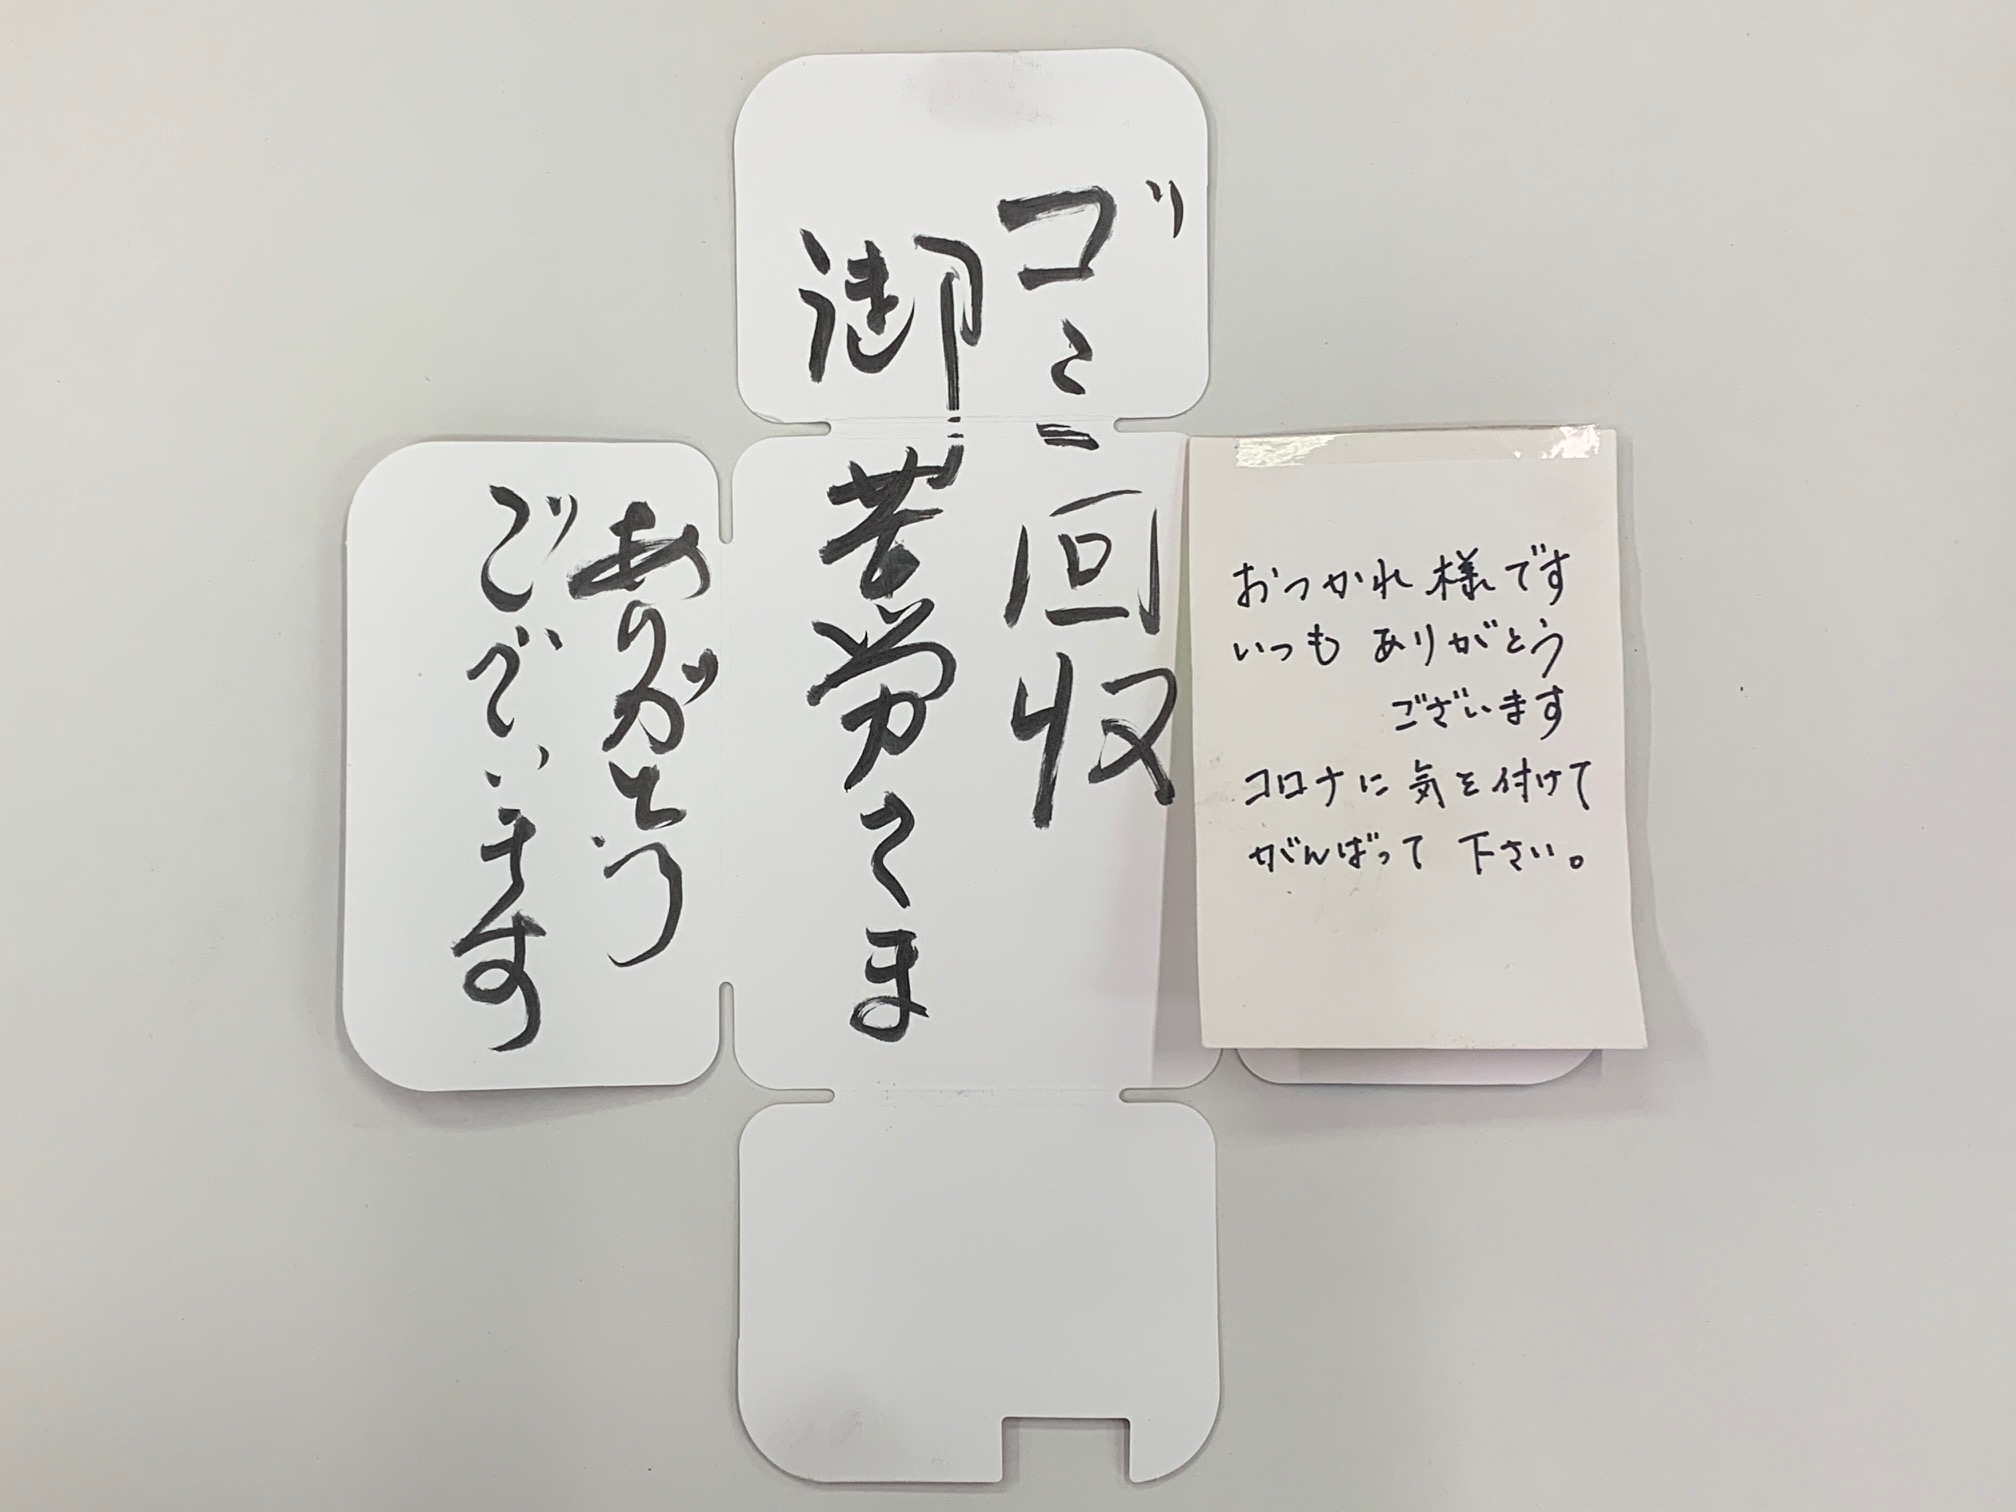 ゴミ回収
御苦労さま
ありがとう
ございます
おつかれ様です
いつもありがとう
ございます
コロナに気を付けて
がんばって下さい。